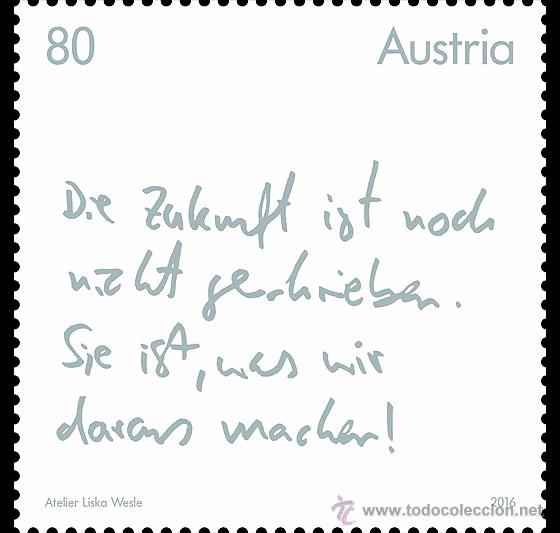 80 Austria
Die Zukunft ist noch
nicht geschrieben.
Sie ist, was wir
daraus machen!
Atelier Liska Wesle 2016
www.todocoleccion.net